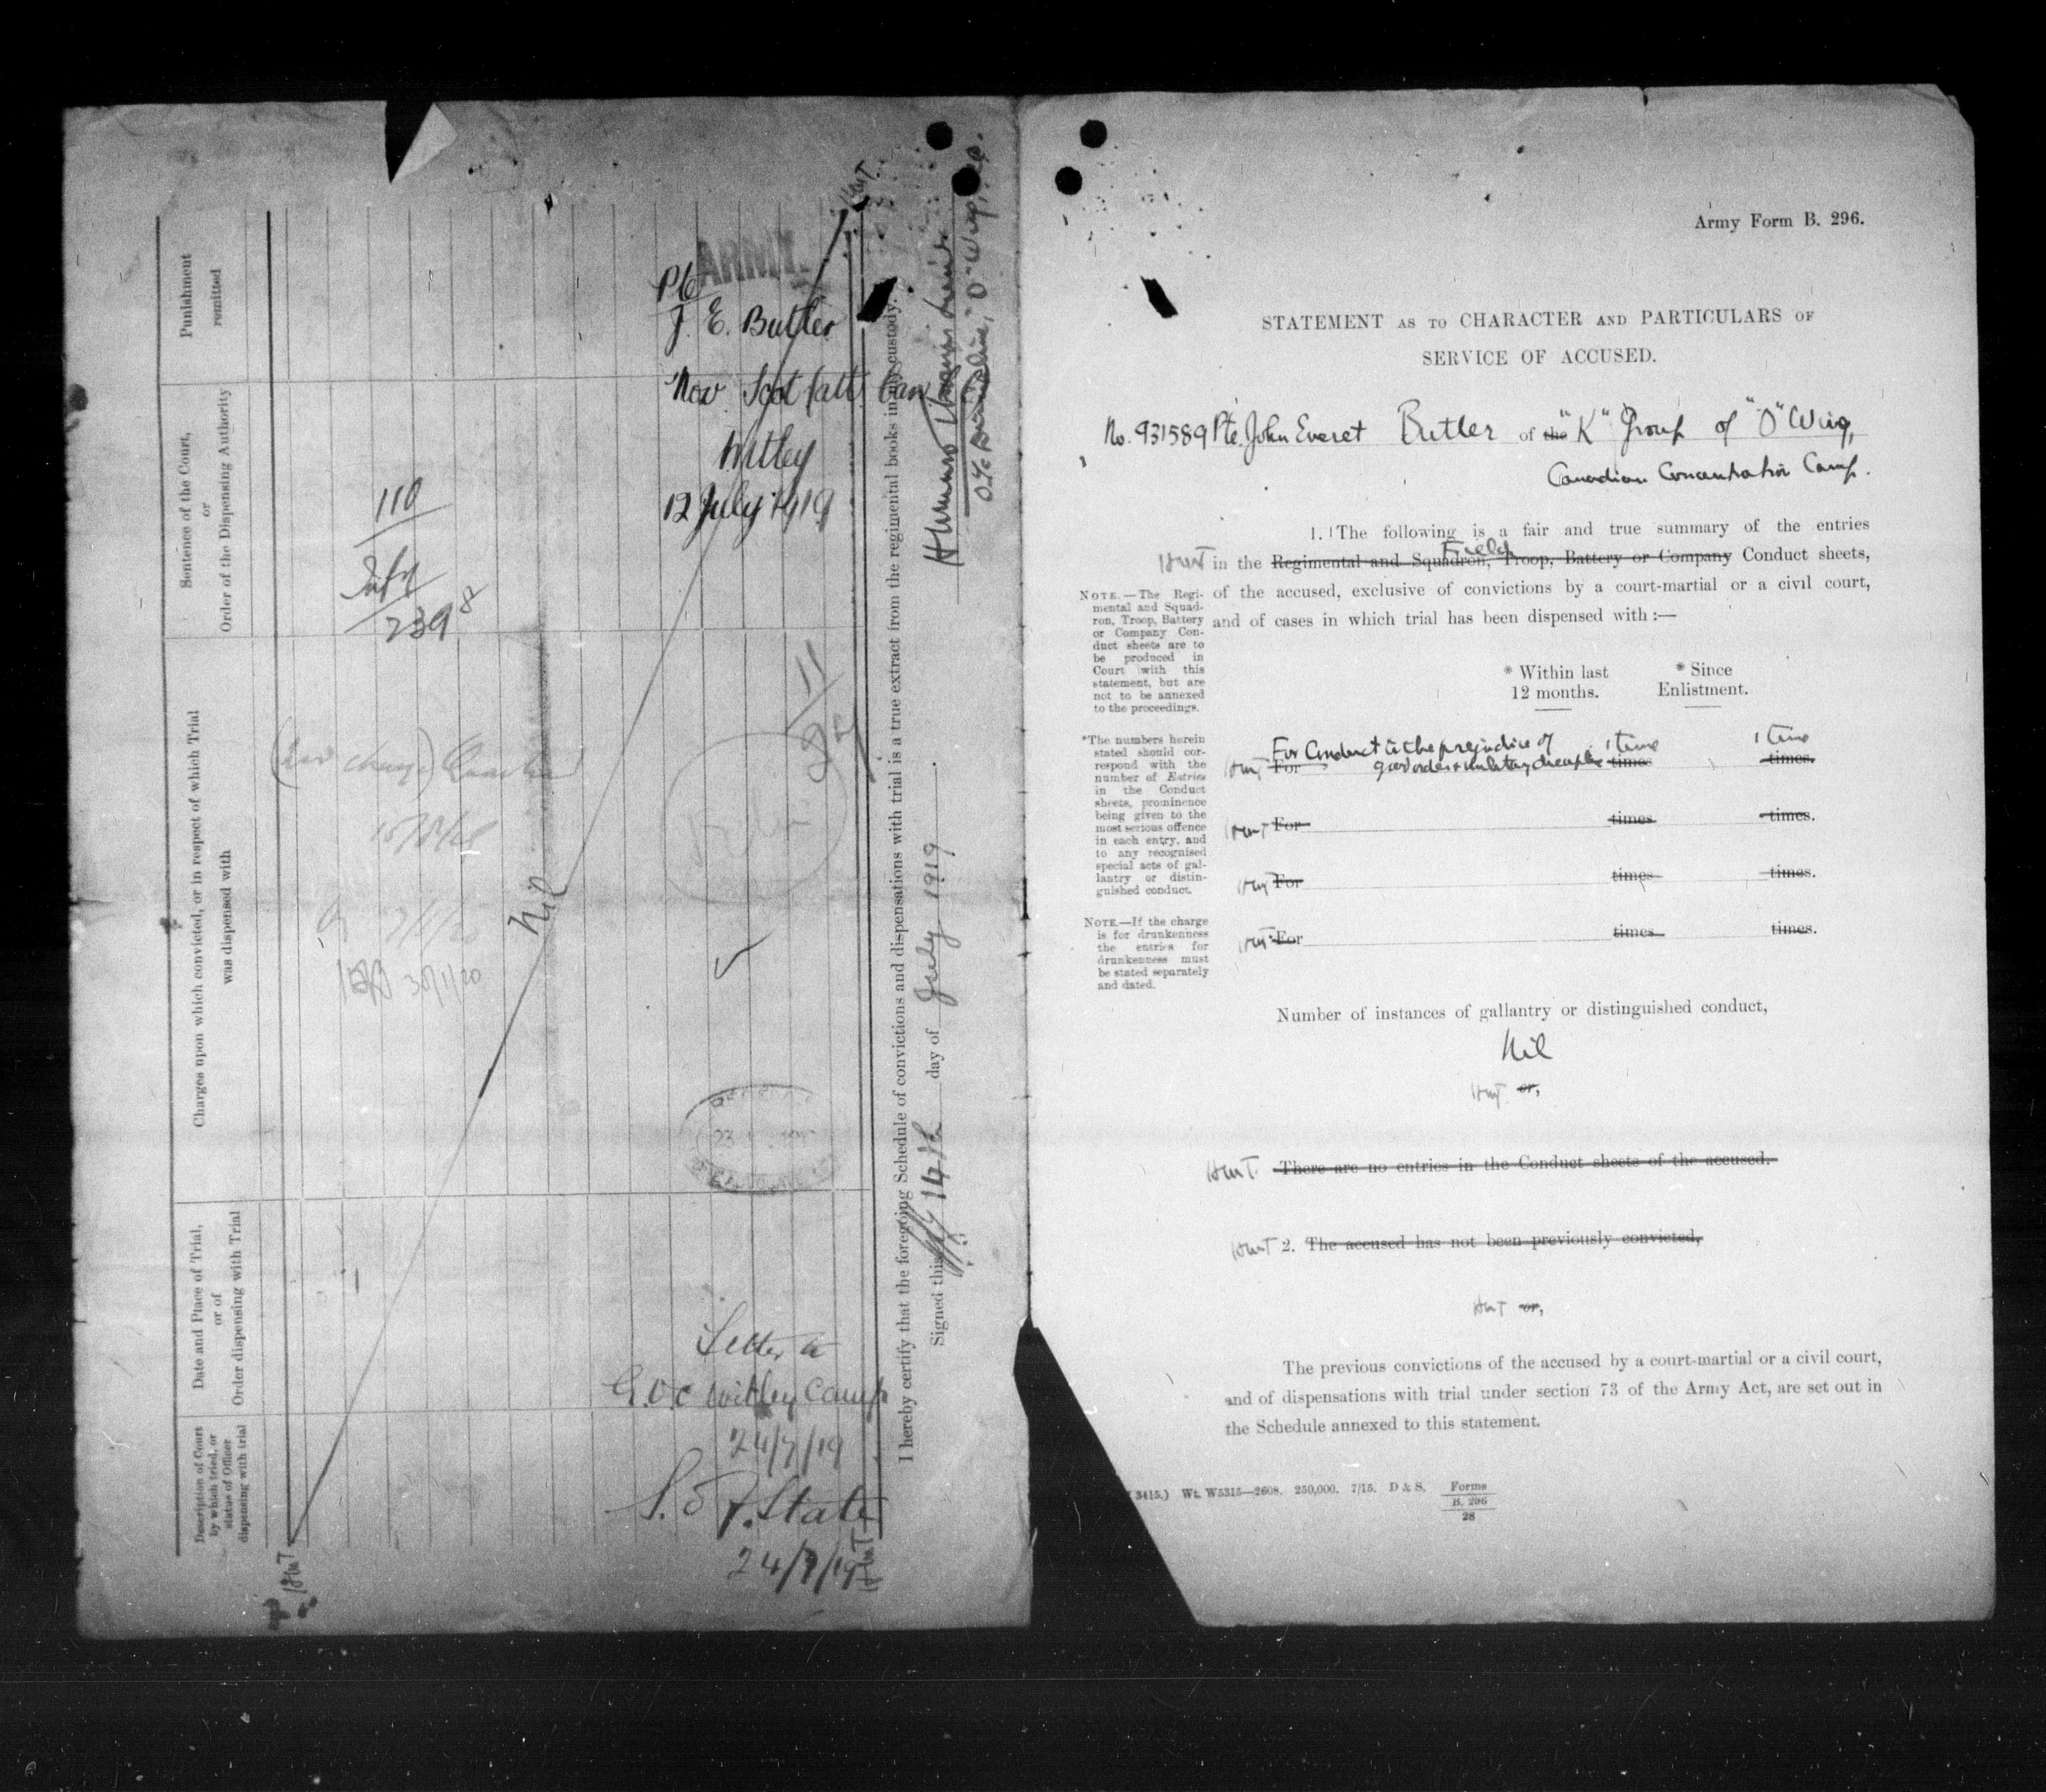 Punishment
remitted
Sentence of the Court,
or
Order of the Dispensing Authority
Charges upon which convicted, or in respect of which Trial
was dispensed with
Date and Place of Trial,
or of
Order dispensing with Trial
Description of Court
by which tried, or
status of Officer
dispensing with trial
110
239
Nil
30/1/20
ARMY.
Pte
J. E. Butler
Nov. Scot
Witley
12 July 1919
11
Letter to
G.O.C Witley Camp
24/7/19
S. of State
24/7/19
HMT
HMT
HMT
I hereby certify that the foregoing Schedule of convictions and dispensations with trial is a true extract from the regimental books in my custody.
Signed this 14th day of July 1919
"O" Wing,
Army Form B. 296.
STATEMENT AS TO CHARACTER AND PARTICULARS OF
SERVICE OF ACCUSED.
No. 931589 Pte. John Everet Butler of the "K" Group of "O" Wing,
Canadian Concentration Camp.
1. The following is a fair and true summary of the entries
Field
HMT in the Regimental and Squadron, Troop, Battery or Company Conduct sheets,
of the accused, exclusive of convictions by a court-martial or a civil court,
and of cases in which trial has been dispensed with :—
NOTE.—The Regi-
mental and Squad-
ron, Troop, Battery
or Company Con-
duct sheets are to
be produced in
Court with this
statement, but are
not to be annexed
to the proceedings.
* Within last
12 months.
* Since
Enlistment.
*The numbers herein
stated should cor-
respond with the
number of Entries
in the Conduct
sheets, prominence
being given to the
most serious offence
in each entry, and
to any recognised
special acts of gal-
lantry or distin-
guished conduct.
For Conduct to the prejudice of 1 time 1 time
HMT For good order & military discipline times times.
HMT For times times.
HMT For times times.
HMT For times times.
NOTE.—If the charge
is for drunkenness
the entries for
drunkenness must
be stated separately
and dated.
Number of instances of gallantry or distinguished conduct,
Nil
HMT or,
HMT There are no entries in the Conduct sheets of the accused.
HMT 2. The accused has not been previously convicted,
HMT or,
The previous convictions of the accused by a court-martial or a civil court,
and of dispensations with trial under section 73 of the Army Act, are set out in
the Schedule annexed to this statement.
3415.) Wt. W5315—2608. 250,000. 7/15. D & S. Forms
B. 296
28